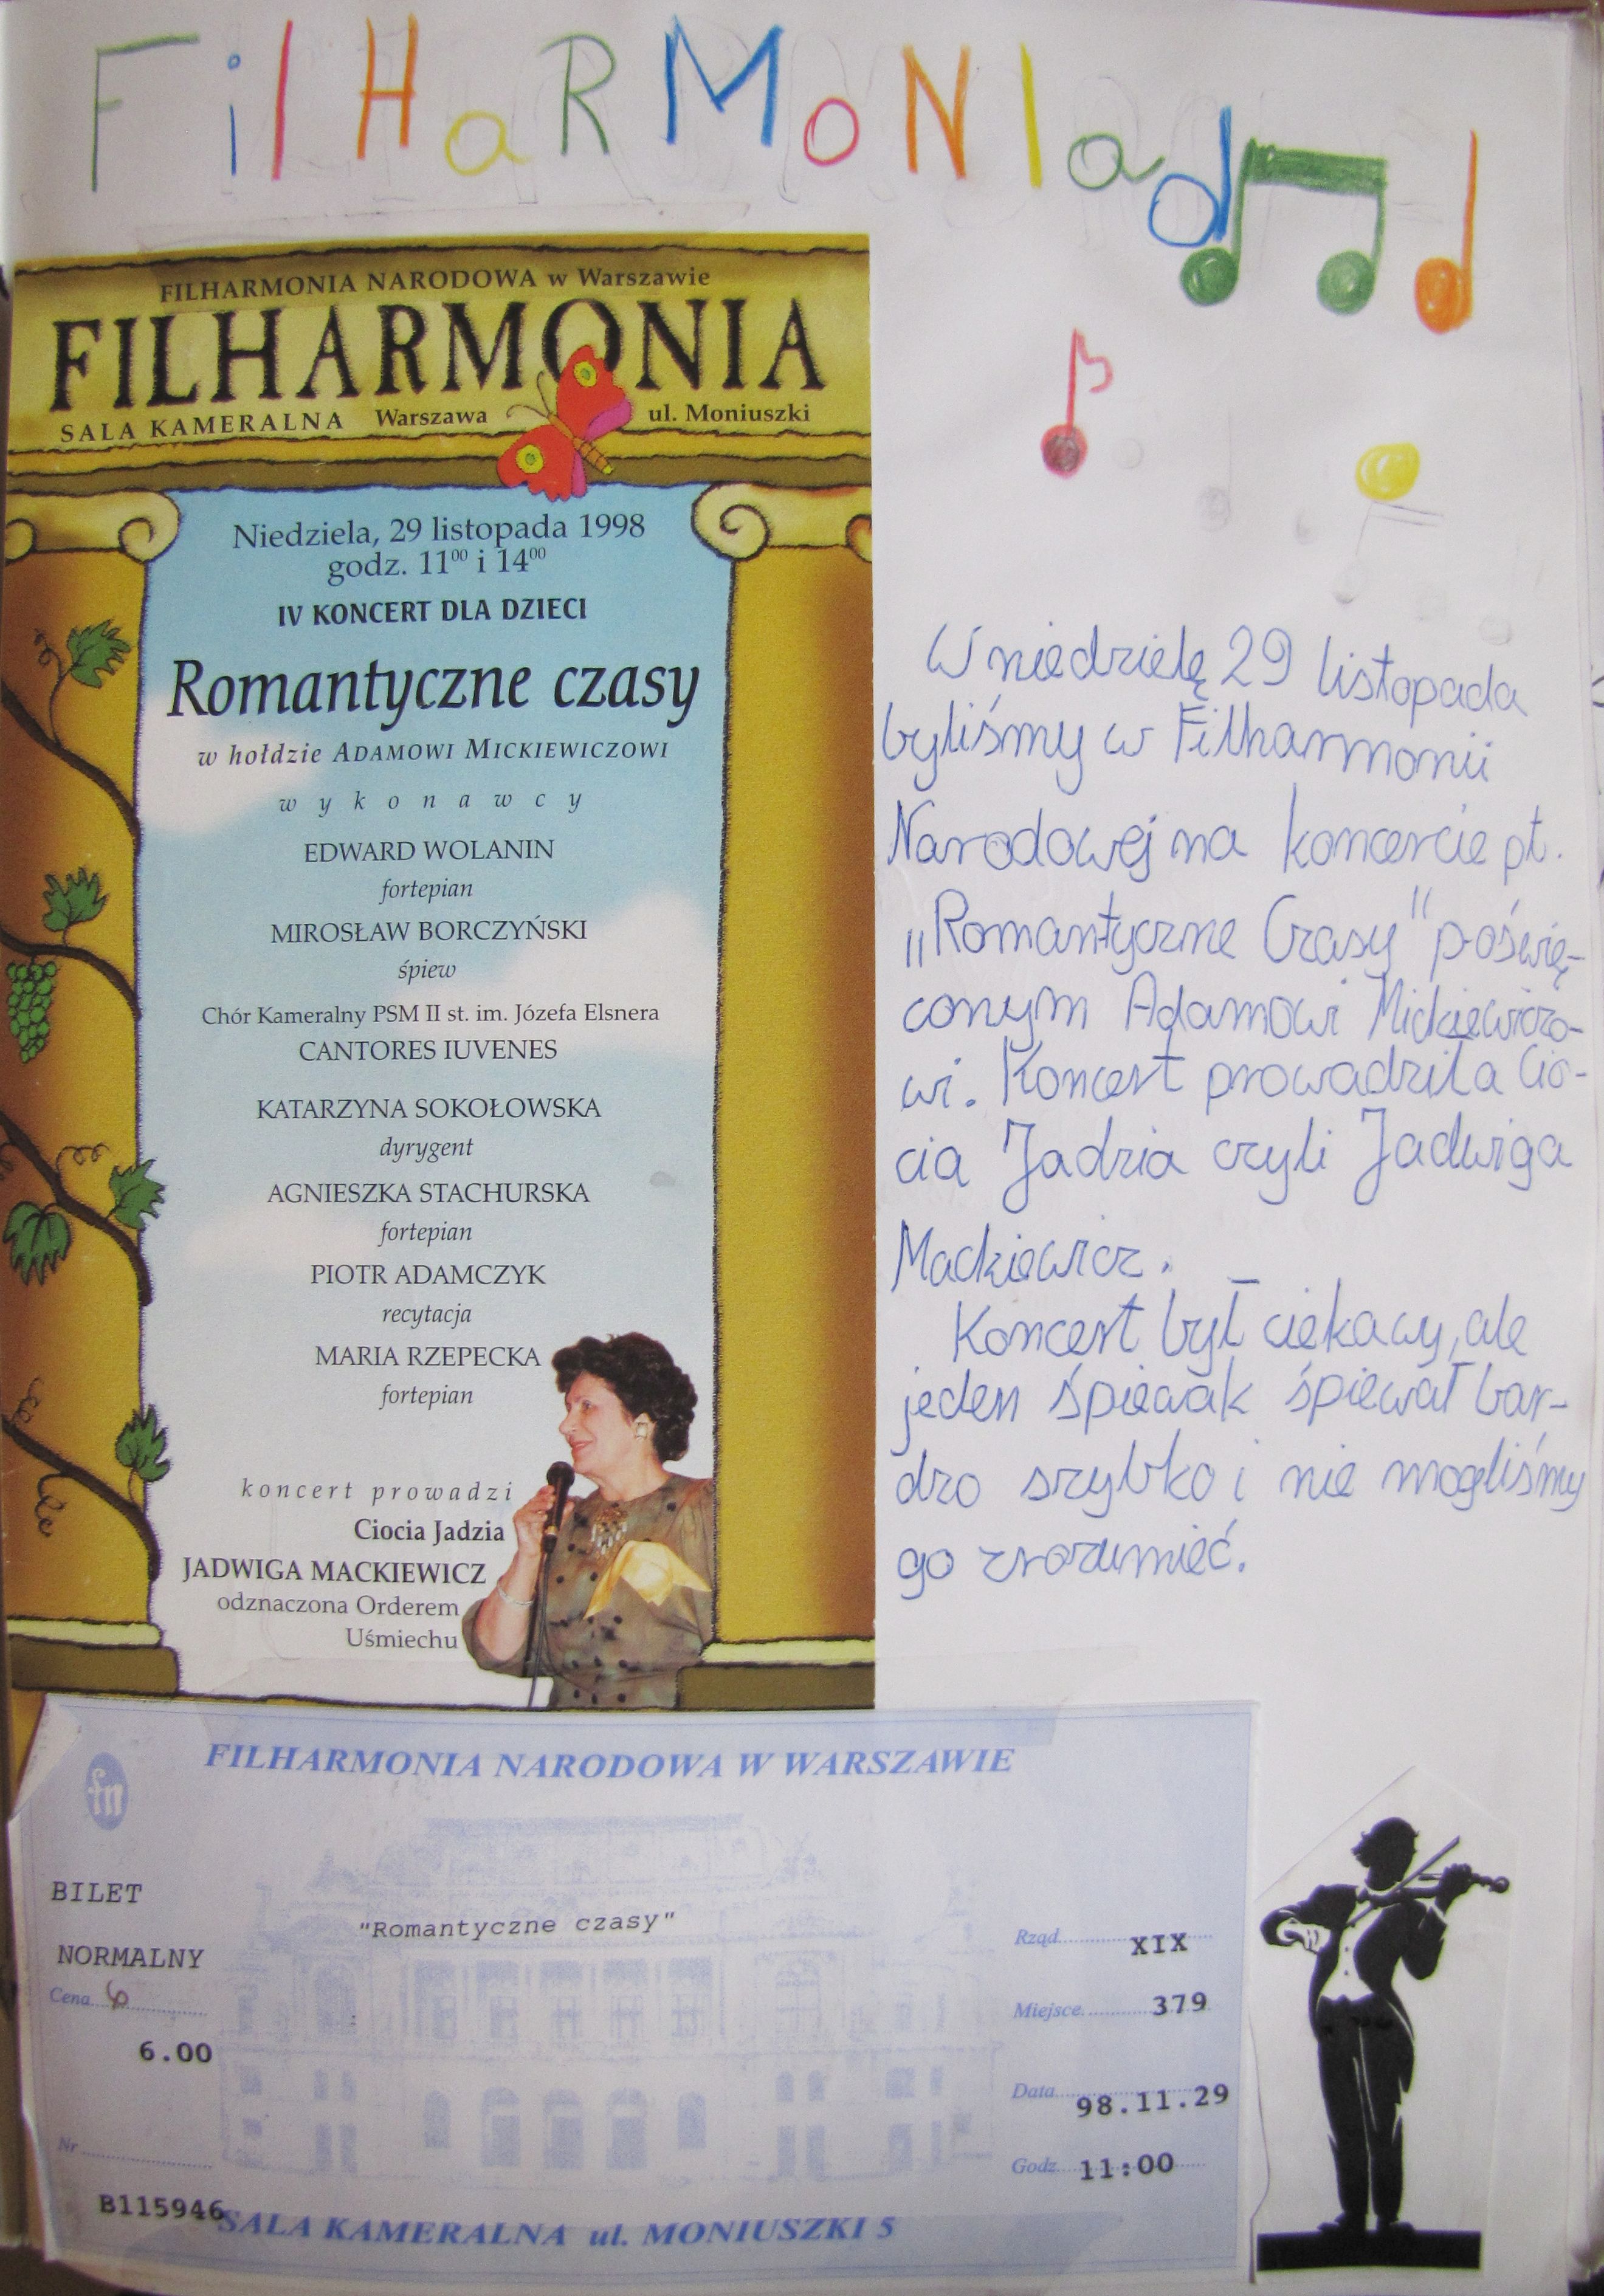 FilHaRMoNIa
FILHARMONIA NARODOWA w Warszawie
FILHARMONIA
SALA KAMERALNA Warszawa ul. Moniuszki
Niedziela, 29 listopada 1998
godz. 11⁰⁰ i 14⁰⁰
IV KONCERT DLA DZIECI
Romantyczne czasy
w hołdzie ADAMOWI MICKIEWICZOWI
wykonawcy
EDWARD WOLANIN
fortepian
MIROSŁAW BORCZYŃSKI
śpiew
Chór Kameralny PSM II st. im. Józefa Elsnera
CANTORES IUVENES
KATARZYNA SOKOŁOWSKA
dyrygent
AGNIESZKA STACHURSKA
fortepian
PIOTR ADAMCZYK
recytacja
MARIA RZEPECKA
fortepian
koncert prowadzi
Ciocia Jadzia
JADWIGA MACKIEWICZ
odznaczona Orderem
Uśmiechu
W niedzielę 29 listopada
byliśmy w Filharmonii
Narodowej na koncercie pt.
„Romantyczne Czasy" poświę-
conym Adamowi Mickiewiczo-
wi. Koncert prowadziła Cio-
cia Jadzia czyli Jadwiga
Mackiewicz.
Koncert był ciekawy, ale
jeden śpiewak śpiewał bar-
dzo szybko i nie mogliśmy
go zrozumieć.
FILHARMONIA NARODOWA W WARSZAWIE
fn
BILET
"Romantyczne czasy"
NORMALNY
Cena 6
6.00
Nr
B115946
Rząd XIX
Miejsce 379
Data 98.11.29
Godz. 11:00
SALA KAMERALNA ul. MONIUSZKI 5